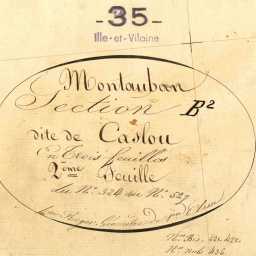 -35-
Ille-et-Vilaine
Montauban
Section B²
dite de Caslou
En trois feuilles
2ème Feuille
du N° 324 au N° 527
N° Bis. 422
N° 436